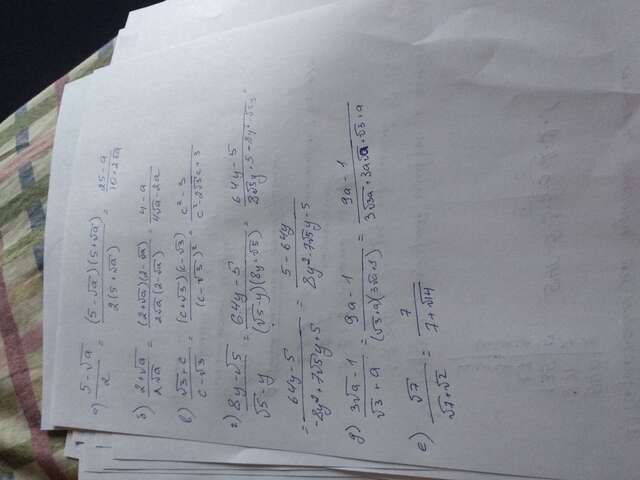 а) (5-√a)/2 = ((5-√a)(5+√a))/(2(5+√a)) = (25-a)/(10+2√a)
б) (2+√a)/(2√a) = ((2+√a)(2-√a))/(2√a(2-√a)) = (4-a)/(4√a-2a)
в) (√3+c)/(c-√3) = ((c+√3)(c-√3))/((c-√3)²) = (c²-3)/(c²-2√3c+3)
г) (8y-√5)/(√5-y) = (64y-5)/((√5-y)(8y+√5)) = (64y-5)/(8√5y+5-8y²-√5y) =
= (64y-5)/(-8y²+7√5y+5) = (5-64y)/(8y²-7√5y-5)
д) (3√a-1)/(√3+a) = (9a-1)/((√3+a)(3√a+1)) = (9a-1)/(3√3a+3a√a+√3+a)
е) √7/(√7+√2) = 7/(7+√14)